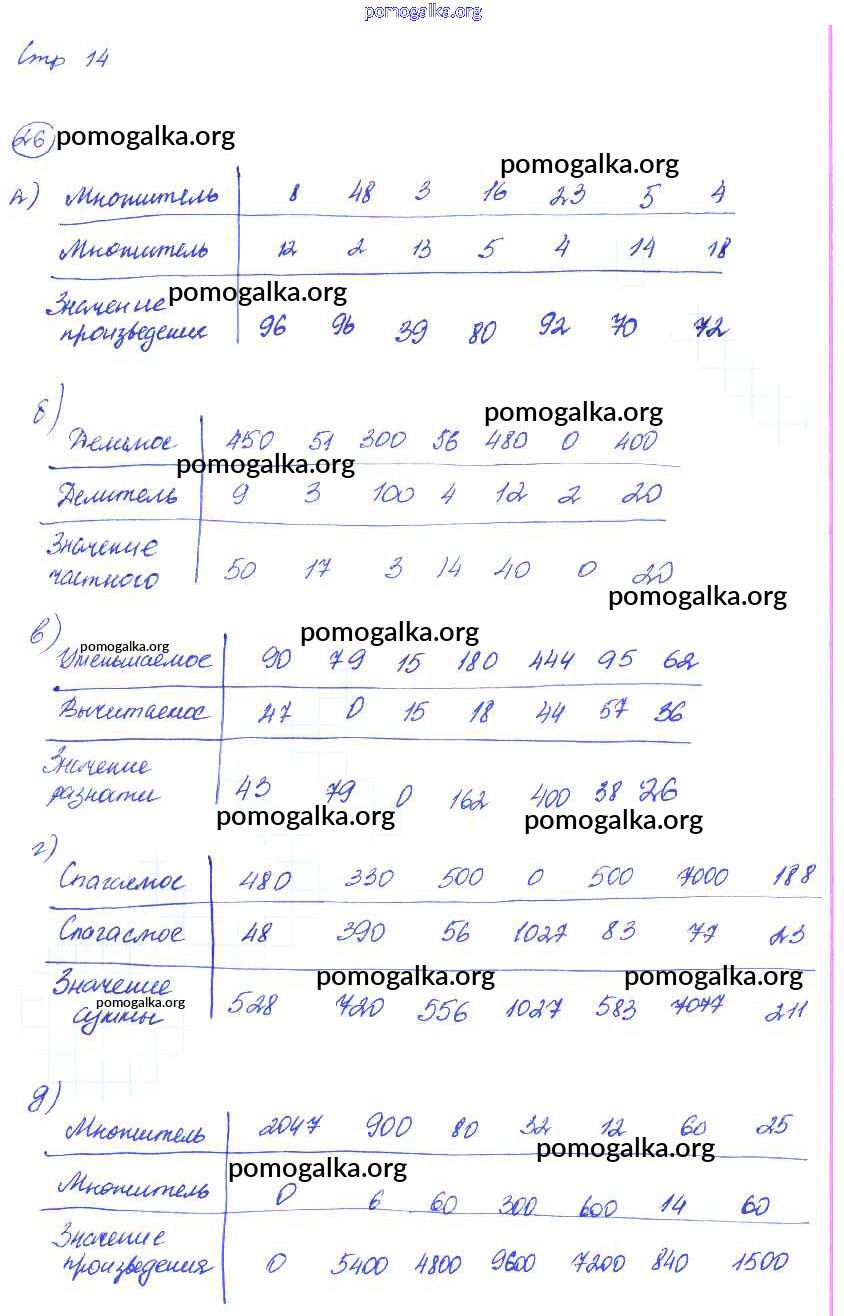 pomogalka.org
Стр 14
26 pomogalka.org
pomogalka.org
а) Множитель 8 48 3 16 23 5 4
Множитель 12 2 13 5 4 14 18
Значение pomogalka.org
произведения 96 96 39 80 92 70 72
б)
pomogalka.org
Делимое 450 51 300 56 480 0 400
pomogalka.org
Делитель 9 3 100 4 12 2 20
Значение
частного 50 17 3 14 40 0 20
pomogalka.org
в)
pomogalka.org pomogalka.org
Уменьшаемое 90 79 15 180 444 95 62
Вычитаемое 47 0 15 18 44 57 36
Значение
разности 43 79 0 162 400 38 26
pomogalka.org pomogalka.org
г)
Слагаемое 480 330 500 0 500 7000 188
Слагаемое 48 390 56 1027 83 77 23
Значение pomogalka.org pomogalka.org
pomogalka.org
суммы 528 720 556 1027 583 7077 211
д)
Множитель 2047 900 80 32 12 60 25
pomogalka.org
pomogalka.org
Множитель 0 6 60 300 600 14 60
Значение
произведения 0 5400 4800 9600 7200 840 1500